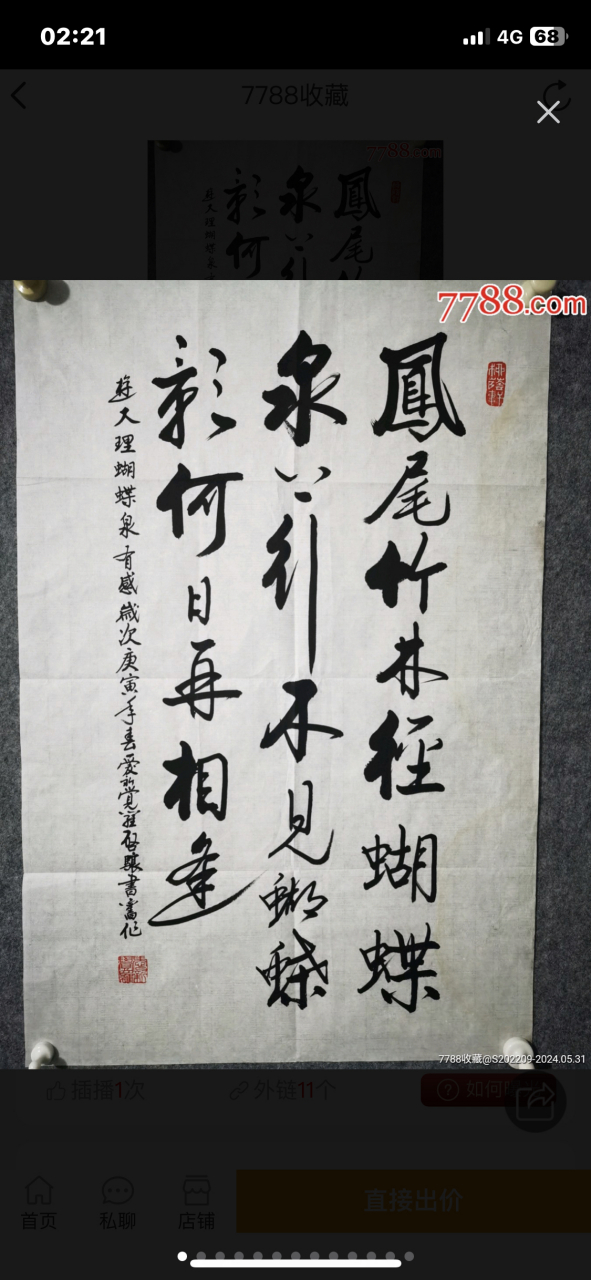 02:21
4G 68
7788收藏
7788.com
鳳尾竹林徑蝴蝶
泉公行不見蝴蝶
影何日再相逢
遊大理蝴蝶泉有感歲次庚寅年春愛新覺羅啟驤書舊作
7788收藏@S202209-2024.05.31
插播1次
外链11个
如何
首页
私聊
店铺
直接出价